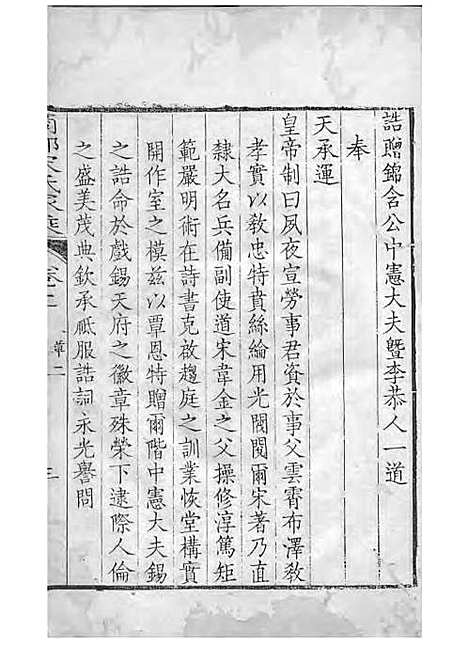 誥贈錦含公中憲大夫暨李恭人一道
奉
天承運
皇帝制曰夙夜宣勞事君資於事父雲霄布澤教
孝實以教忠特賁絲綸用光閥閱爾宋著乃直
隸大名兵備副使道宋韋金之父操修淳篤矩
範嚴明術在詩書克啟趨庭之訓業恢堂構實
開作室之模茲以覃恩特贈爾階中憲大夫錫
之誥命於戲錫天府之徽章殊榮下逮際人倫
之盛美茂典欽承祗服誥詞永光譽問
宋氏家乘
卷二
華二